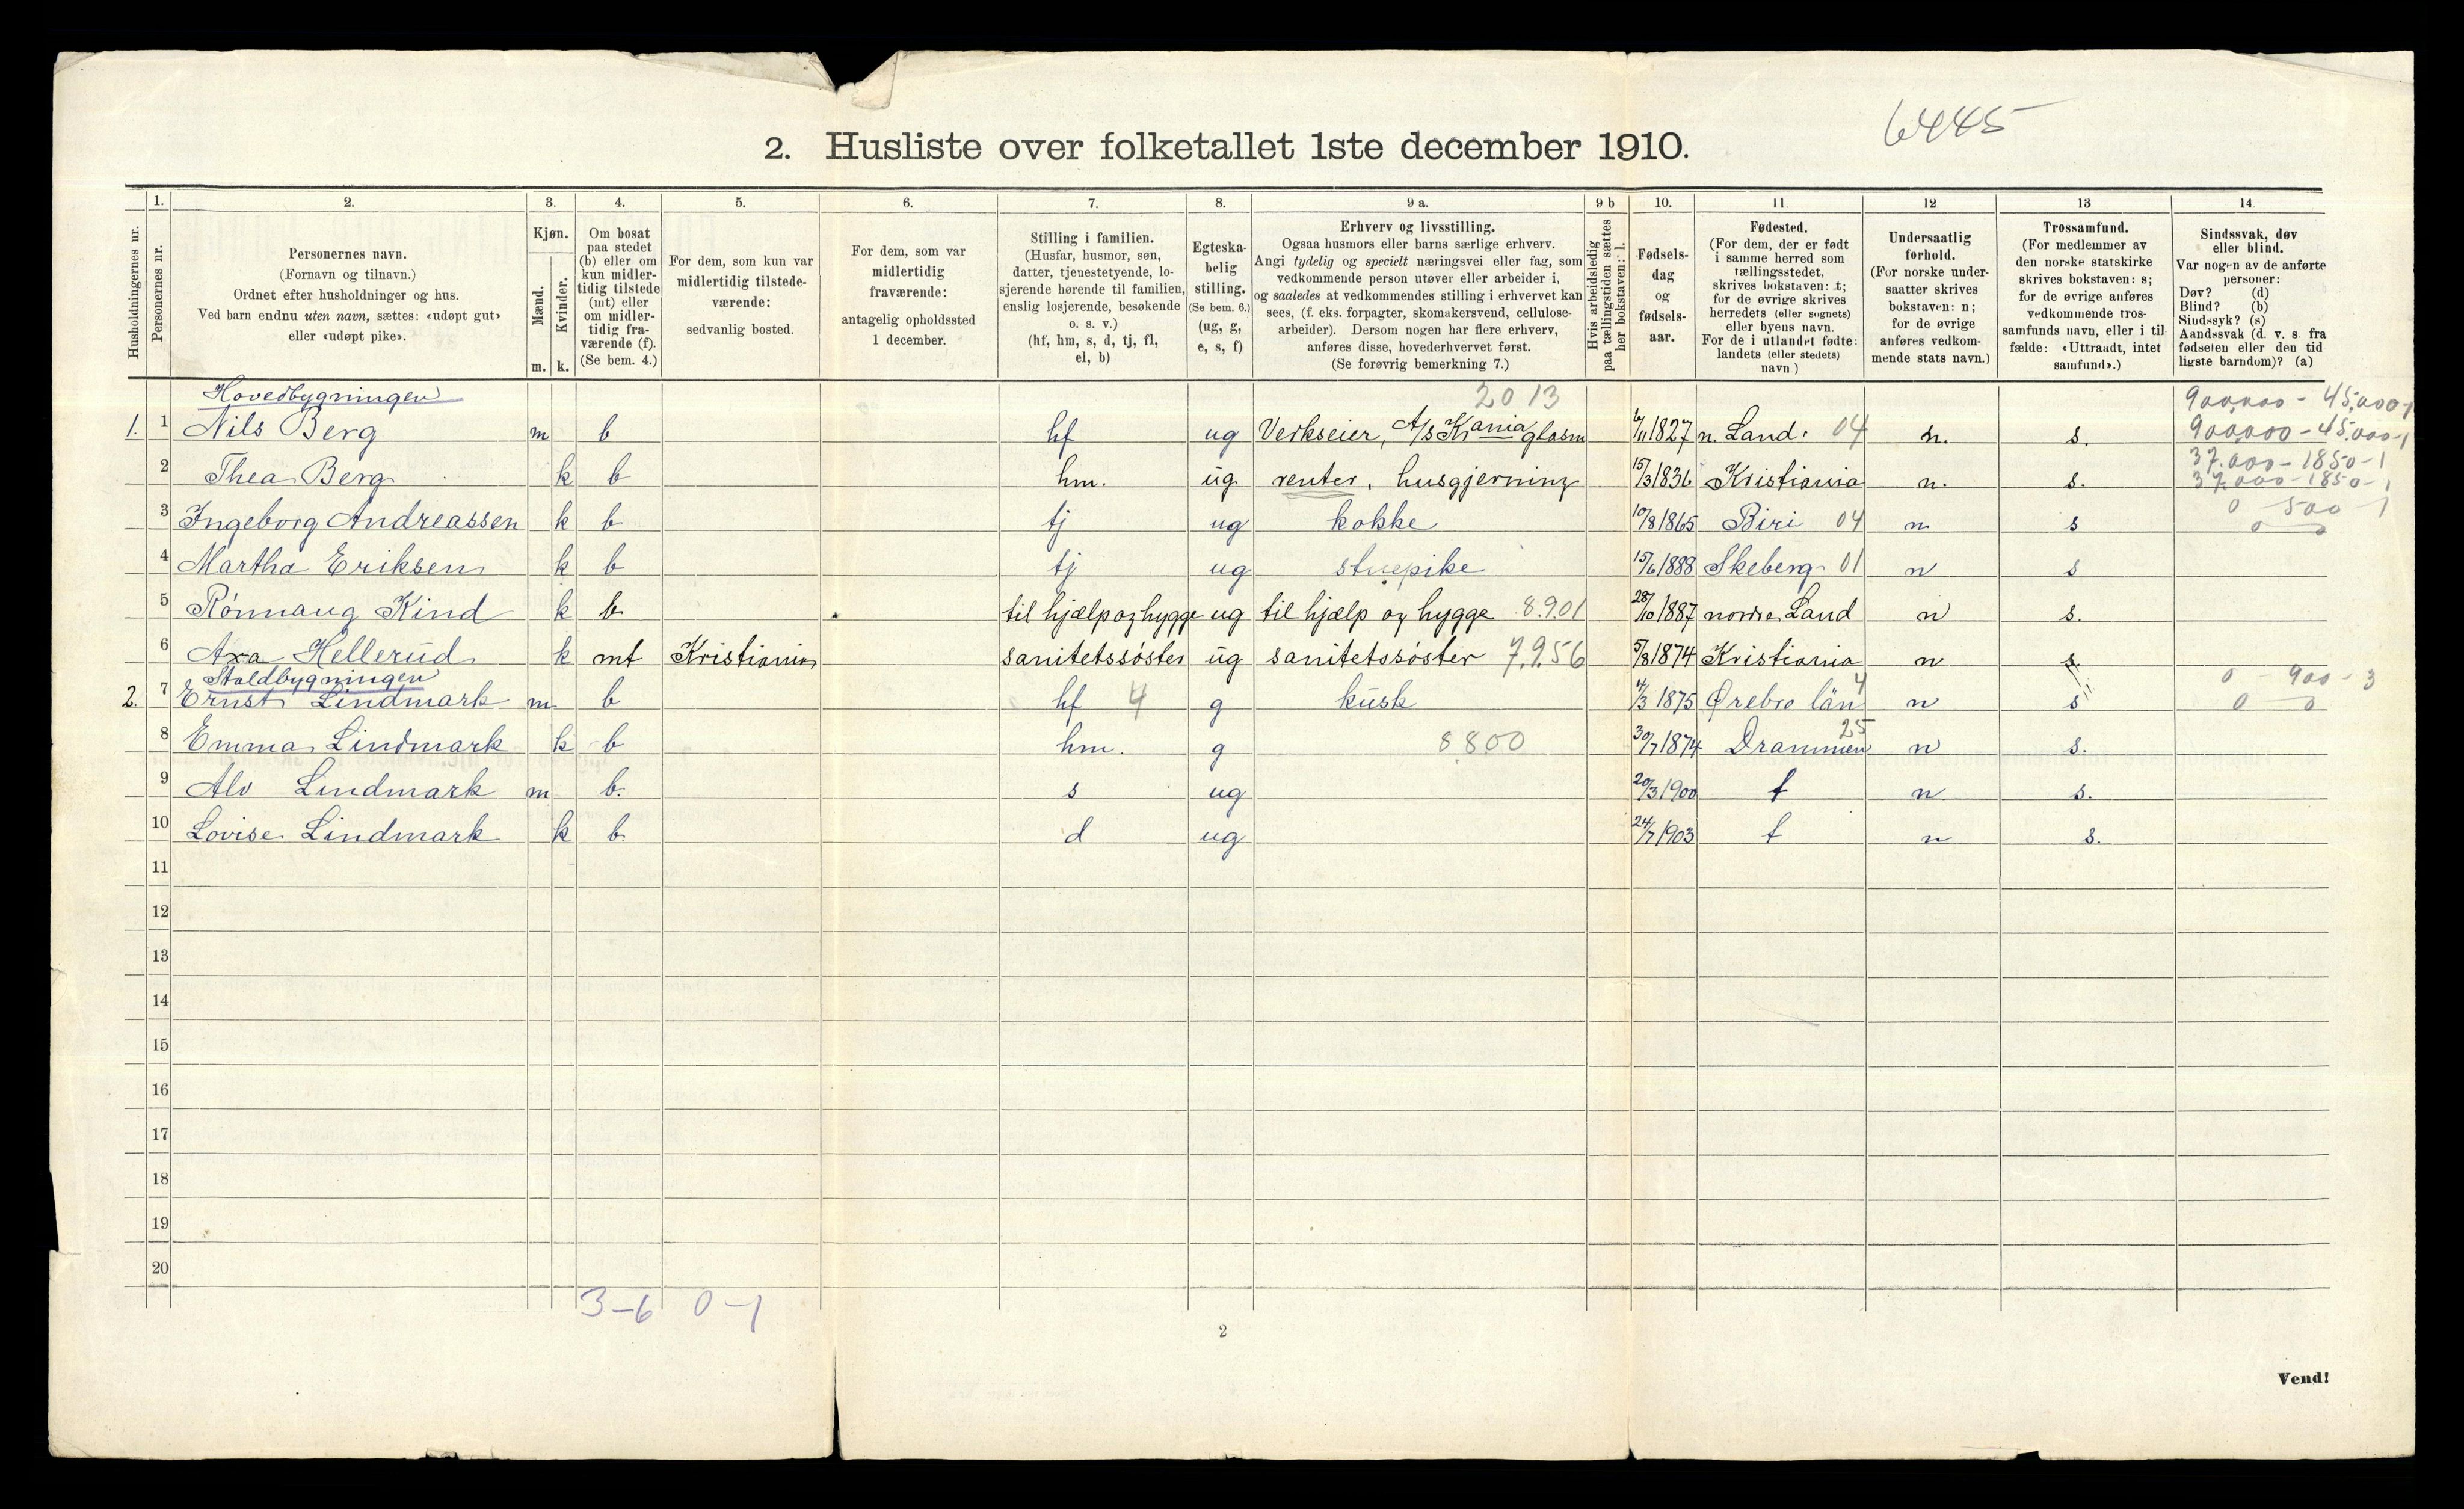 6445
2. Husliste over folketallet 1ste december 1910.
Husholdningernes nr.
1.
Personernes nr.
2.
Personernes navn.
(Fornavn og tilnavn.)
Ordnet efter husholdninger og hus.
Ved barn endnu uten navn, sættes: «udøpt gut»
eller «udøpt pike».
3.
Kjøn.
Mænd.
Kvinder.
m. k.
4.
Om bosat
paa stedet
(b) eller om
kun midler-
tidig tilstede
(mt) eller
om midler-
tidig fra-
værende (f).
(Se bem. 4.)
5.
For dem, som kun var
midlertidig tilstede-
værende:
sedvanlig bosted.
6.
For dem, som var
midlertidig
fraværende:
antagelig opholdssted
1 december.
7.
Stilling i familien.
(Husfar, husmor, søn,
datter, tjenestetyende, lo-
sjerende hørende til familien,
enslig losjerende, besøkende
o. s. v.)
(hf, hm, s, d, tj, fl,
el, b)
8.
Egteska-
belig
stilling.
(Se bem. 6.)
(ug, g,
e, s, f)
9 a.
Erhverv og livsstilling.
Ogsaa husmors eller barns særlige erhverv.
Angi tydelig og specielt næringsvei eller fag, som
vedkommende person utøver eller arbeider i,
og saaledes at vedkommendes stilling i erhvervet kan
sees, (f. eks. forpagter, skomakersvend, cellulose-
arbeider). Dersom nogen har flere erhverv,
anføres disse, hovederhvervet først.
(Se forøvrig bemerkning 7.)
9 b
Hvis arbeidsledig
paa tællingstiden sættes
her bokstaven: l.
10.
Fødsels-
dag
og
fødsels-
aar.
11.
Fødested.
(For dem, der er født
i samme herred som
tællingsstedet,
skrives bokstaven: t;
for de øvrige skrives
herredets (eller sognets)
eller byens navn.
For de i utlandet fødte:
landets (eller stedets)
navn)
12.
Undersaatlig
forhold.
(For norske under-
saatter skrives
bokstaven: n;
for de øvrige
anføres vedkom-
mende stats navn.)
13
Trossamfund.
(For medlemmer av
den norske statskirke
skrives bokstaven: s;
for de øvrige anføres
vedkommende tros-
samfunds navn, eller i til
fælde: «Uttraadt, intet
samfund».)
14
Sindssvak, døv
eller blind.
Var nogen av de anførte
personer:
Døv? (d)
Blind? (b)
Sindssyk? (s)
Aandssvak (d. v. s. fra
fødselen eller den tid
ligste barndom)? (a)
Hovedbygningen 2013 900,000 - 45,000-1
1. 1 Nils Berg m b hf ug Verkseier, A/s Kr.ania glasm 6/11 1827 n. Land. 04 n. s. 900,000 - 45,000-1
37.000 - 1850-1
2 Thea Berg k b hm. ug renter, husgjerning 15/3 1836 Kristiania n. s. 37.000 - 1850-1
0 500 1
3 Ingeborg Andreassen k b tj ug kokke 10/8 1865 Biri 04 n s 0 0
4 Martha Eriksen k b tj ug stuepike 15/6 1888 Skeberg 01 n s
5 Rönnaug Kind k b til hjælp og hygge ug til hjælp og hygge 8.9.01 28/10 1887 nordre Land n s.
6 Axa Hellerud k mt Kristiania sanitetssöster ug sanitetssöster 7.9.56 5/8 1874 Kristiania n s
Staldbygningen 0 - 900 - 3
2. 7 Ernst Lindmark m b hf 4 g kusk 4/3 1875 Örebro län 4 n s 0 0
8 Emma Lindmark k b hm. g 8.800 30/7 1874 Drammen 25 n s.
9 Alv Lindmark m b. s ug 20/3 1900 t n s.
10 Lovise Lindmark k b. d ug 24/7 1903 t n s.
11
12
13
14
15
16
17
18
19
20
3-6 0-1
2
Vend!